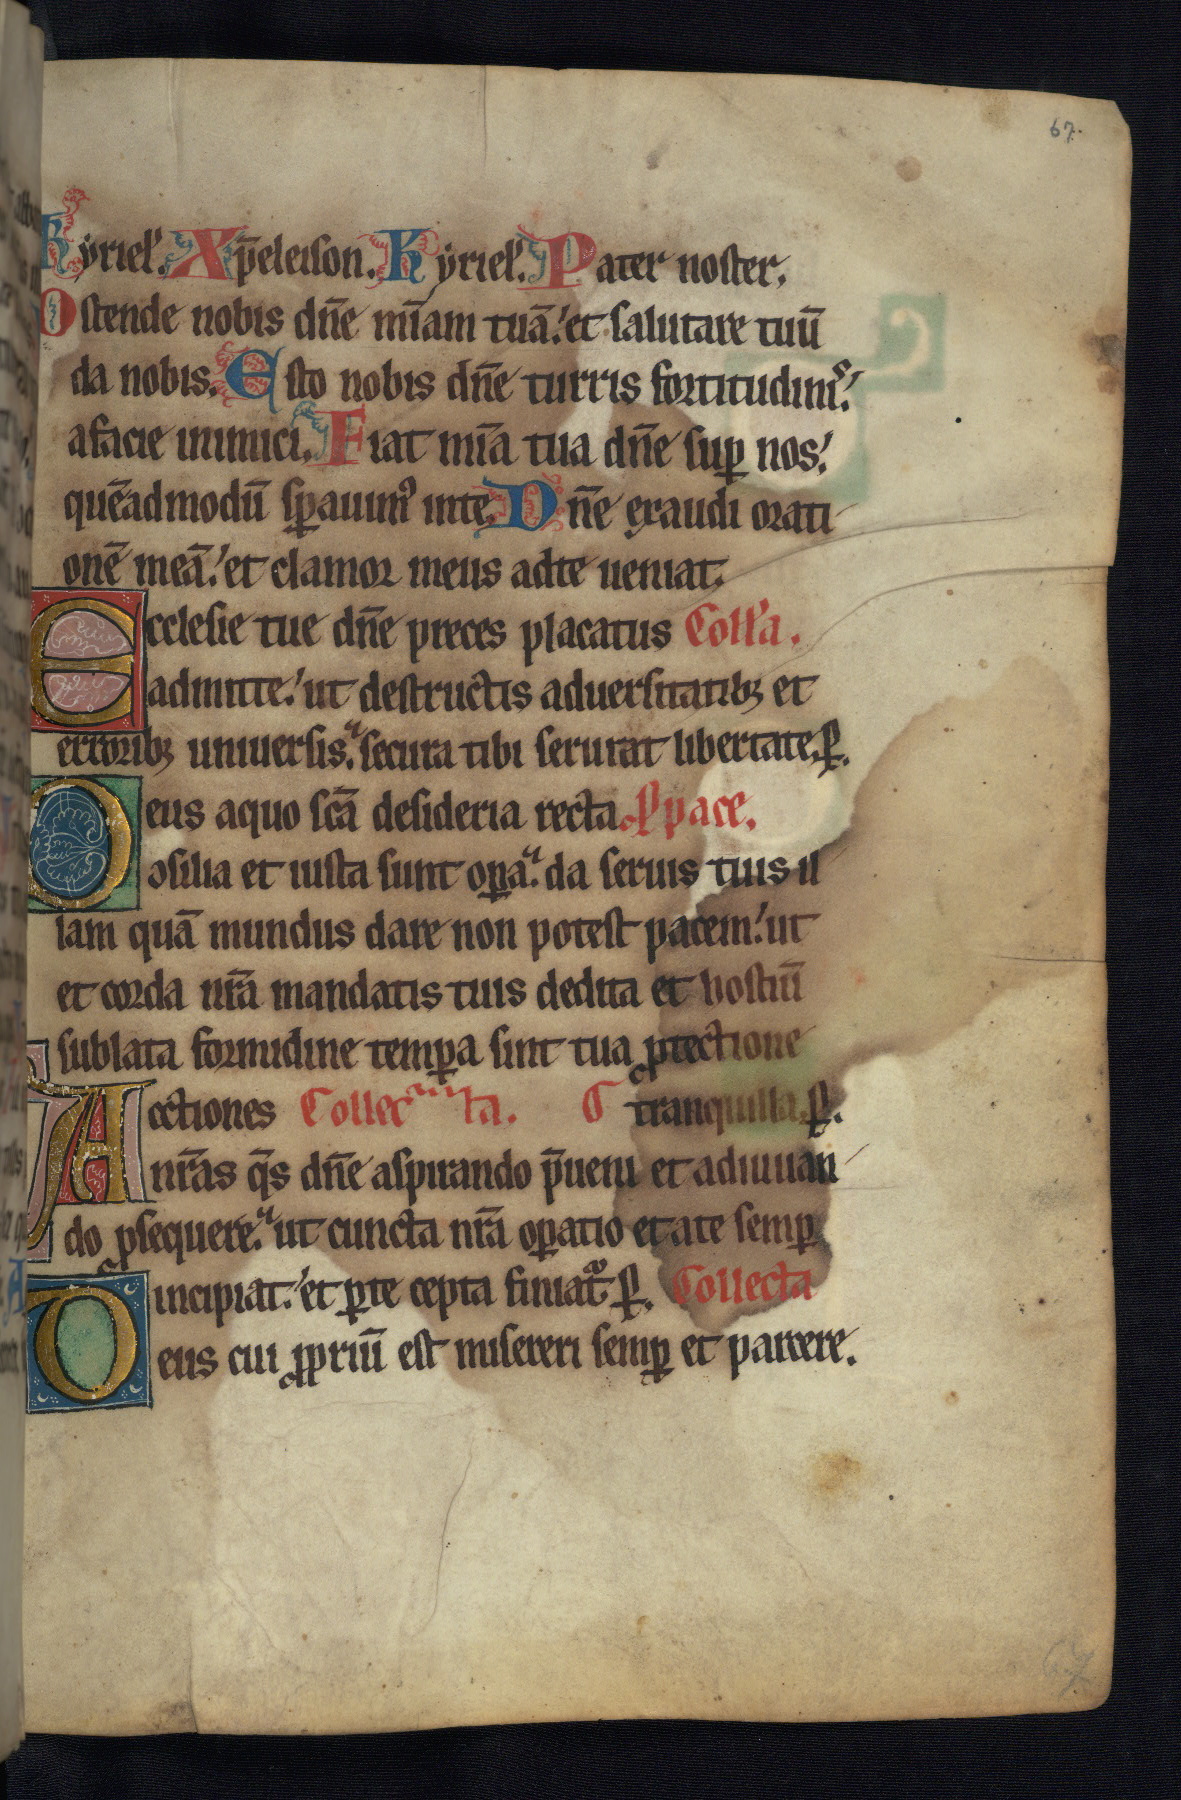 67.
Kyriel'. Xp̄eleison. Kyriel'. Pater noster.
Ostende nobis dn̄e mīam tuā.' et salutare tuū
da nobis. Esto nobis dn̄e turris fortitudinis.'
afacie inimici. Fiat mīa tua dn̄e suꝑ nos.'
quēadmodū sꝑauimꝰ inte. Dn̄e exaudi orati
onē meā.' et clamor meus adte ueniat.
Ecclesie tue dn̄e preces placatus Coll'a.
admitte.' ut destructis aduersitatibꝫ et
erroribꝫ uniuersis. secura tibi seruiat libertate. ꝑ.
Deus aquo scā desideria recta ꝓ pace.
ↄsilia et iusta sunt oꝑa. da seruis tuis il
lam quā mundus dare non potest pacem.' ut
et corda nr̄a mandatis tuis dedita et hostiū
sublata formidine temꝑa sint tua ꝓtectione
Actiones Collecta. tranquilla. ꝑ.
nr̄as q̄s dn̄e aspirando p̄ueni et adiuuan
do ꝓsequere. ut cuncta nr̄a oꝑatio et ate semꝑ
incipiat.' et ꝑte cepta finiat᷑. ꝑ. Collecta
Deus cui ꝓpriū est misereri semꝑ et parcere.
67